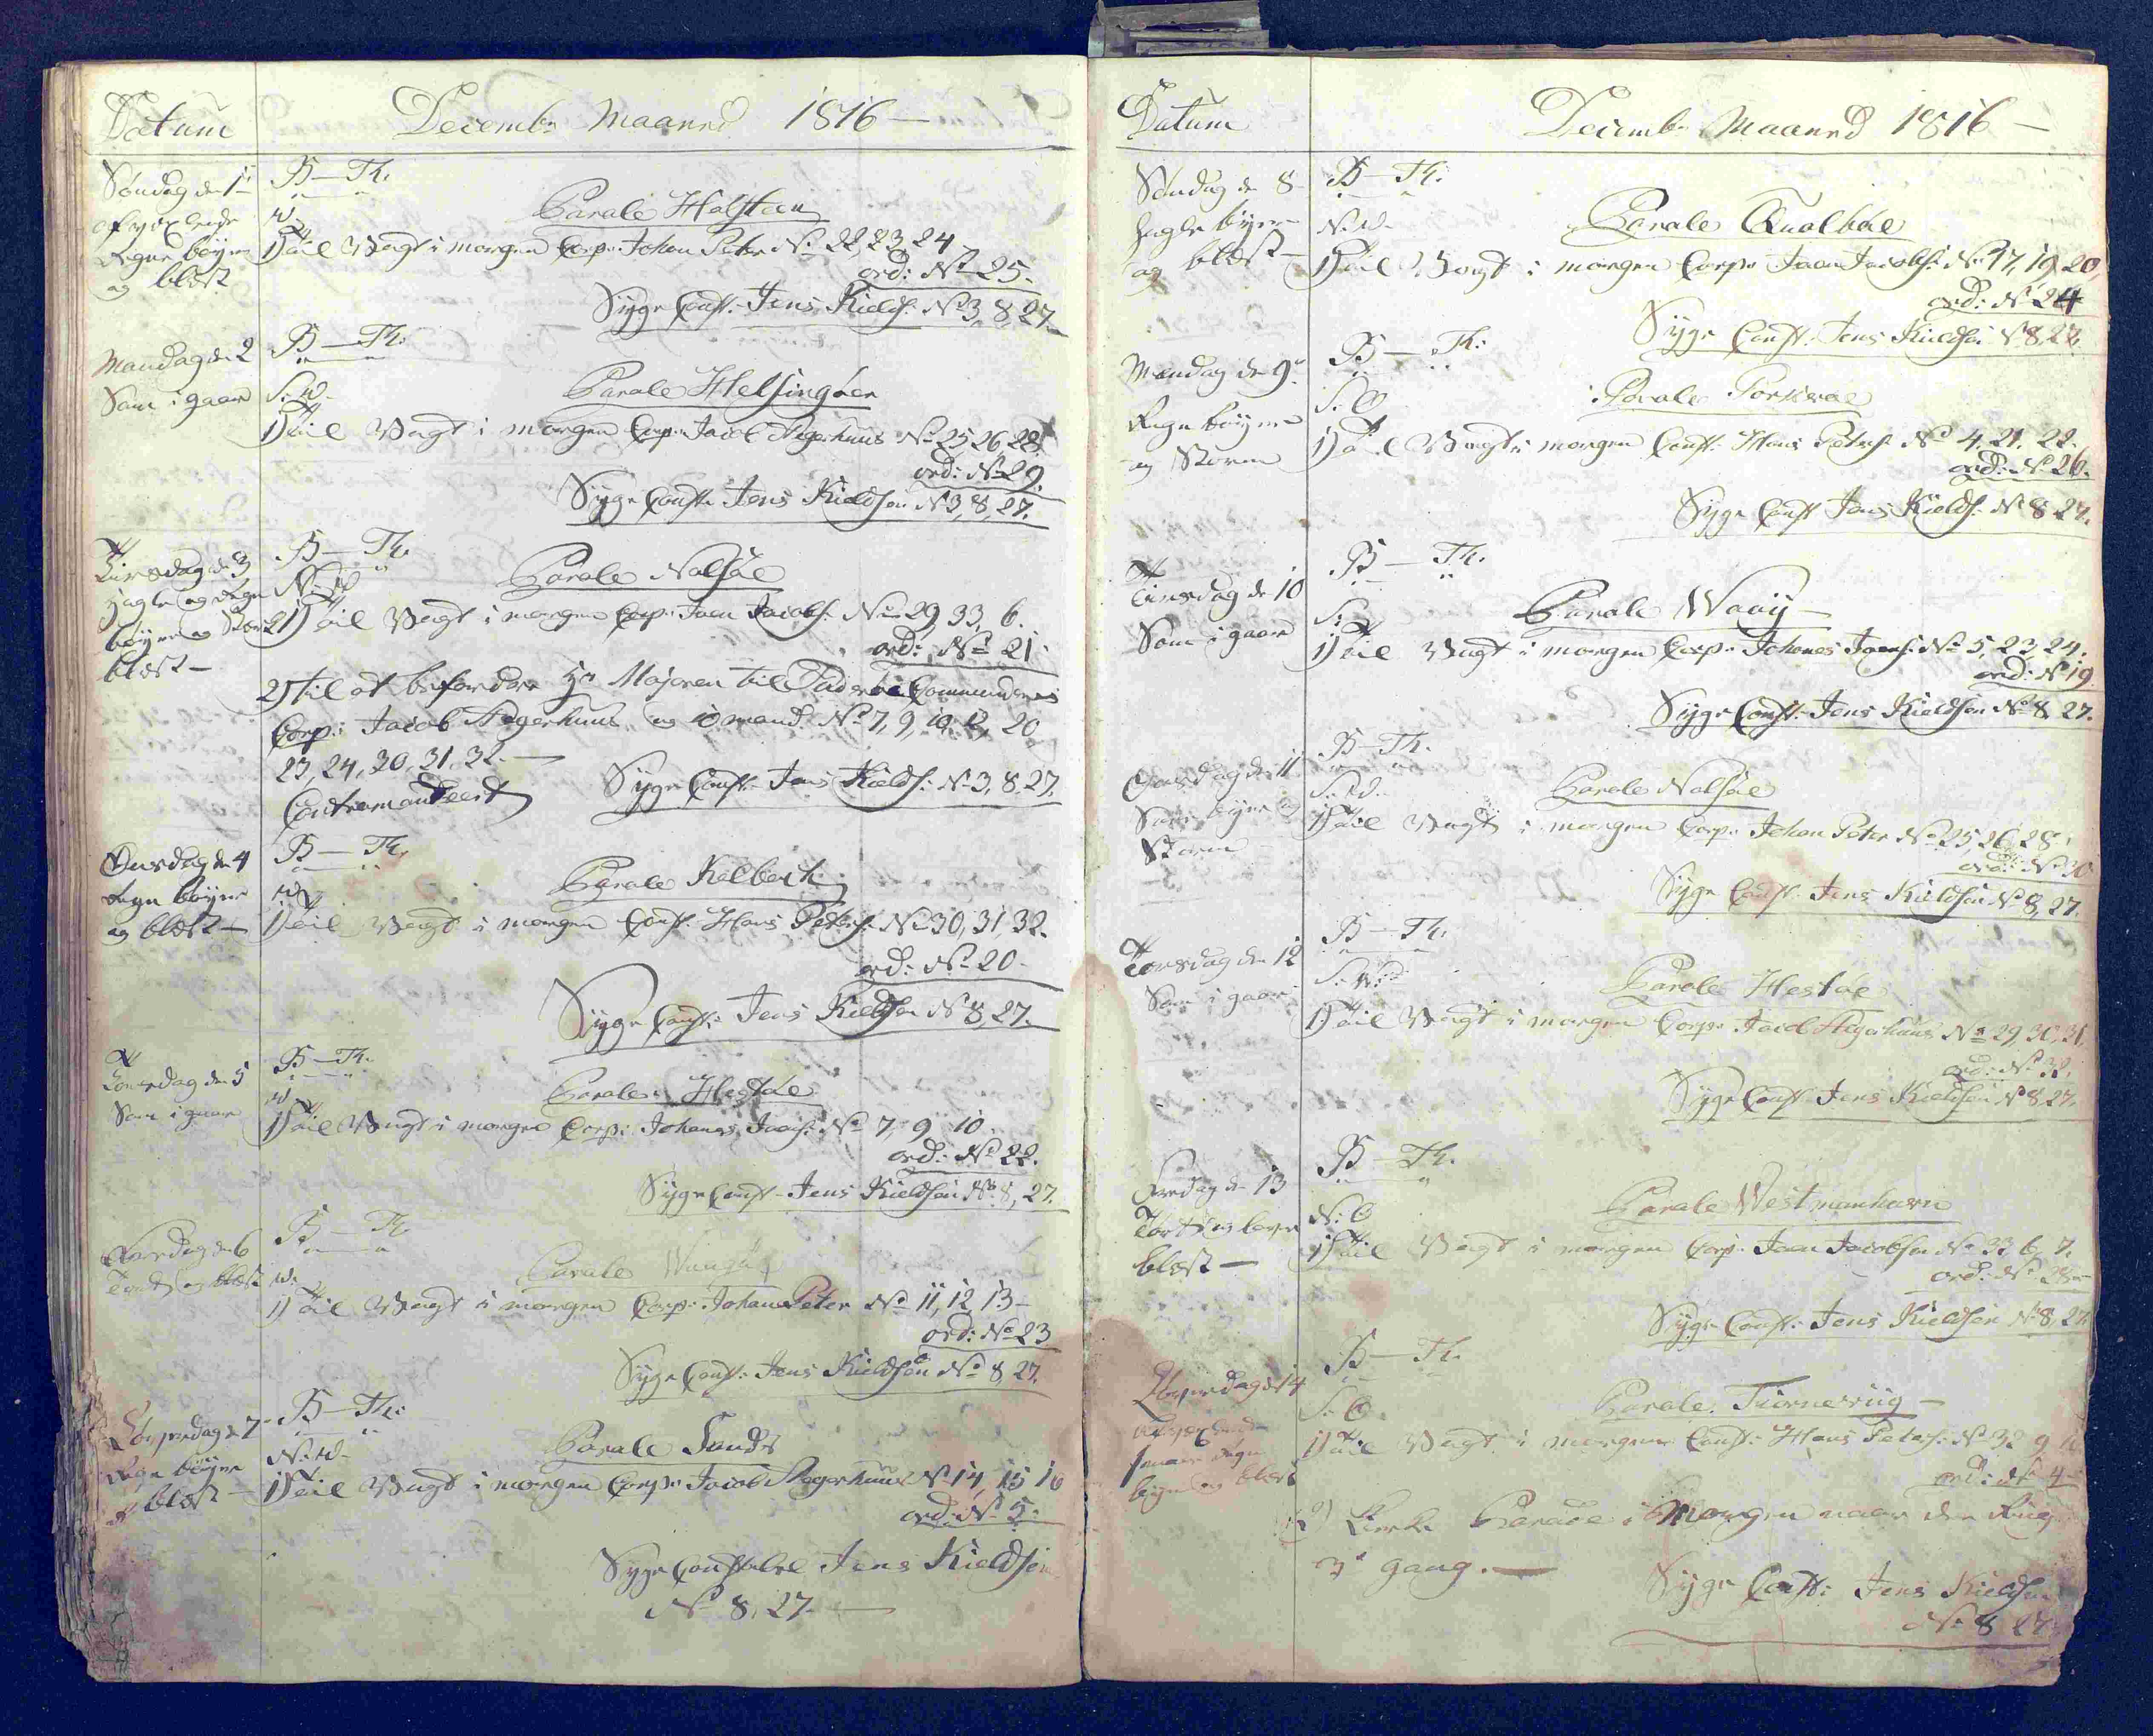 Datum
Decembr Maaned 1816 —
Søndag den 1te
afvexlende
Regne bøyer
og blæst
B — Th.
W.
Parole Holsteen
1) Til Vagt i morgen Corp: Johan Peter No 22, 23, 24
ord: No 25.
Syge Const: Jens Kields: No 3, 8, 27.
Mandag den 2
Som i gaar
B — Th.
S: W.
Parole Helsingøer
1) Til Vagt i morgen Corp: Jacob Skegerhuus No 25, 26, 28.
ord: No 29.
Syge Const: Jens Kieldsen No 3, 8, 27.
Tirsdag den 3
Hagle og Regn
bøyer og Stærk
blæst —
B — Th.
N: W
Parole Nolsøe
1) Til Vagt i morgen Corp: Joen Jacobs: No 29, 33, 6.
ord: No 21.
2) til at befordre Hr Majoren til Commanderes
Corp: Jacob Skegerhuus og 10 mand No 7, 9, 10, 12, 20
23, 24, 30, 31, 32. —
Contramandeert
Syge Const: Jens Kields: No 3, 8, 27.
Onsdag den 4
Regn bøyer
og blæst —
B — Th.
W
Parole Kolbech
1) Til Vagt i morgen Const: Hans Peters: No 30, 31, 32.
ord: No 20.
Syge Const: Jens Kieldsen No 8, 27.
Torsdag den 5
Som i gaar
B — Th.
W
Parole Hestøe
1) Til Vagt i morgen Corp: Johanes Joens: No 7, 9, 10.
ord: No 22.
Syge Const: Jens Kieldsen No 8, 27.
Fredag den 6
og blæst
B — Th.
W.
Parole
1) Til Vagt i morgen Corp: Johan Peter No 11, 12, 13 —
ord: No 23
Syge Const: Jens Kieldsen No 8, 27.
Løverdag d 7
Regn bøyer
og blæst —
B — Th:
N: W.
Parole Sands
1) Til Vagt i morgen Corp: Jacob Skegerhuus No 14, 15, 16
ord: No 5:
Syge Constabel Jens Kieldsen
No 8, 27. —
Datum
Decembr Maaned 1816 —
Søndag den 8
Hagle bøyer
og blæst —
B — Th:
N: W.
Parole Qualbøe
1) Til Vagt i morgen Corp: Joen Jacobs: No 17, 19, 20,
ord: No 24
Syge Const: Jens Kieldsen No 8, 27.
Mandag den 9de
Regn bøyer
og Storm
B — Th:
S: O
Parole Porkeroe
1) Til Vagt i morgen Const: Hans Peters: No 4, 21, 22.
ord: No 26.
Syge Const Jens Kields: No 8, 27.
Tirsdag den 10
Som i gaar
B — Th:
S:
Parole Waay —
1) Til Vagt i morgen Corp: Johanes Joens: No 5, 23, 24.
ord: No 19.
Syge Const: Jens Kieldsen No 8, 27.
Onsdag den 11
bøyer og
Storm —
B — Th.
S: W.
Parole Nolsøe
1) Til Vagt i morgen Corp: Johan Peter No 25, 26, 28.
ord: No 30
Syge Const: Jens Kieldsen No 8, 27.
Torsdag den 12
Som i gaar
B — Th.
S: W:
Parole Hestøe
1) Til Vagt i morgen Corp: Jacob Skegerhuus No 29, 30, 31.
ord: No 32.
Syge Const: Jens Kieldsen No 8, 27.
Fredag den 13
blæst —
B — Th.
N: O
Parole Westmanhavn
1) Til Vagt i morgen Corp: Joen Jacobsen No 33, 6, 7.
ord: No 28 —
Syge Const: Jens Kieldsen No 8, 27.
Løverdag d 14
afvexlende
Regn
bøyer og blæst
B — Th.
S: O.
Parole Tiørneviig —
1) Til Vagt i morgen Const: Hans Peters: No 32, 9, 10
ord: No 4 —
2) Kirke Parade i Morgen naar der Ring
3de gang. —
Syge Const: Jens Kieldsen
No 8, 27.